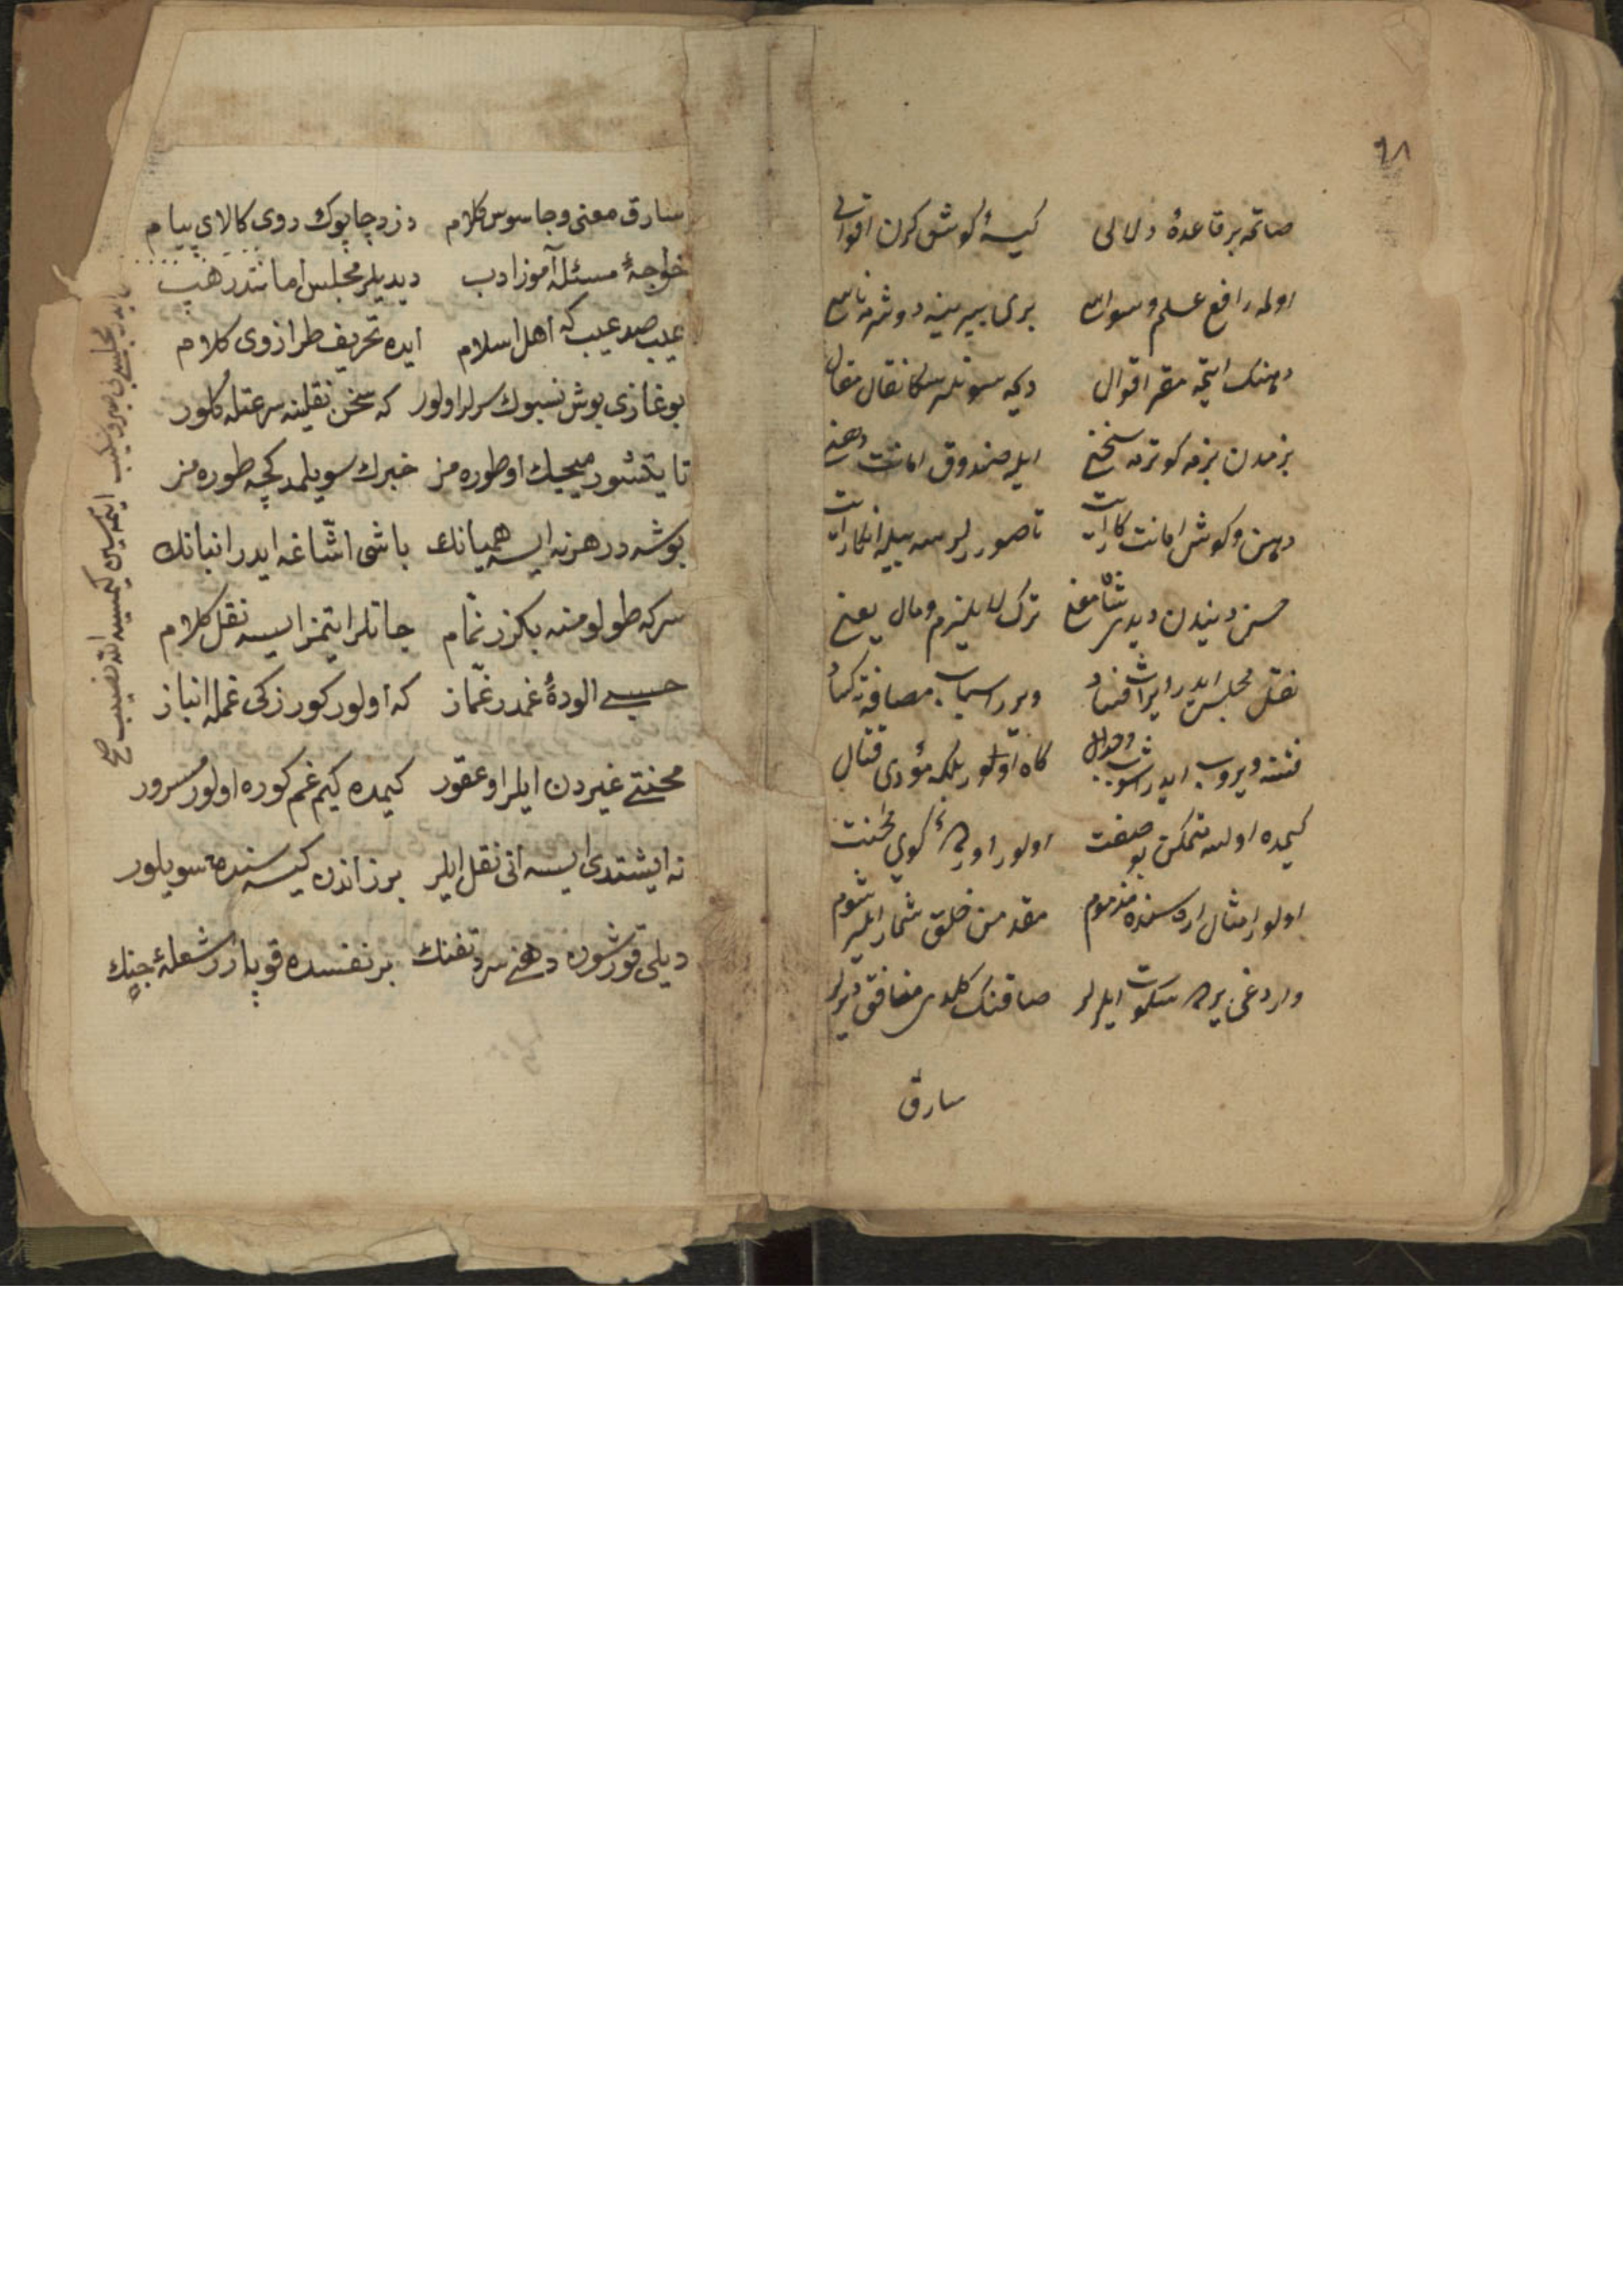 ٦٨
صاتمه بر قاعدهٔ دلالی کیسهٔ گوش کرن اقوالی
اولمه رافع علم وسواس بری بیرینه دوشرمه ناسی
دهنک ایتمه مقر اقوال دیمه سونلر سکا نقال مقال
بزمدن بزمه کوترمه سخنی ایله صندوق امانت دهنی
دهن و کوش امانت
حسن دیندن دیدی شاه ترک لا یلزم و مال یعنی
نقل مجلس ایدر ایراث فساد ویرر اسباب مصافه کساد
فتنه ویروب ایدر کاه اولور بلکه مؤدی قتال
کیمده اولسه بو صفت اولور اولمره کوی محنت
اولور امثال اره سنده مذموم مقدمن خلق شمار ایلر شوم
واردغی یرده سکوت ایلرلر صاقنک کلدی منافق دیرلر
سارق
سارق معنی و جاسوس کلام دزد چابوک روی کالای پیام
خواجهٔ مسئله آموز ادب دیدیلر مجلس امانتدر هپ
عیب صد عیب که اهل اسلام ایده تحریف طراز روی کلام
بوغازی بوش نسبوک سرلر اولور که سخن نقلینه سرعتله کلور
تا یتشورمیجک اوطوره مز خبرک سویلمدکچه طوره مز
بوشه در هر نه ایسه همیانک باشی اشاغه ایدر انبانک
سرکه طولومنه بکزر نمام جاتلر ایتمز ایسه نقل کلام
حبسی الودهٔ غمدر غماز که اولور کورزکی غمله انباز
محنتی غیردن ایلر او عقور کیمده کیم غم کوره اولور مسرور
نه ایشتدی ایسه انی نقل ایلر بر زاندن کیسنده سویلور
دیلی قورشون دهنی سرد تفنک بر نفسده قوپارر شعلهٔ جنک
ایدر مجلسی بی صبر و شکیب ایتمسین کیمسیه الله نصیب صح